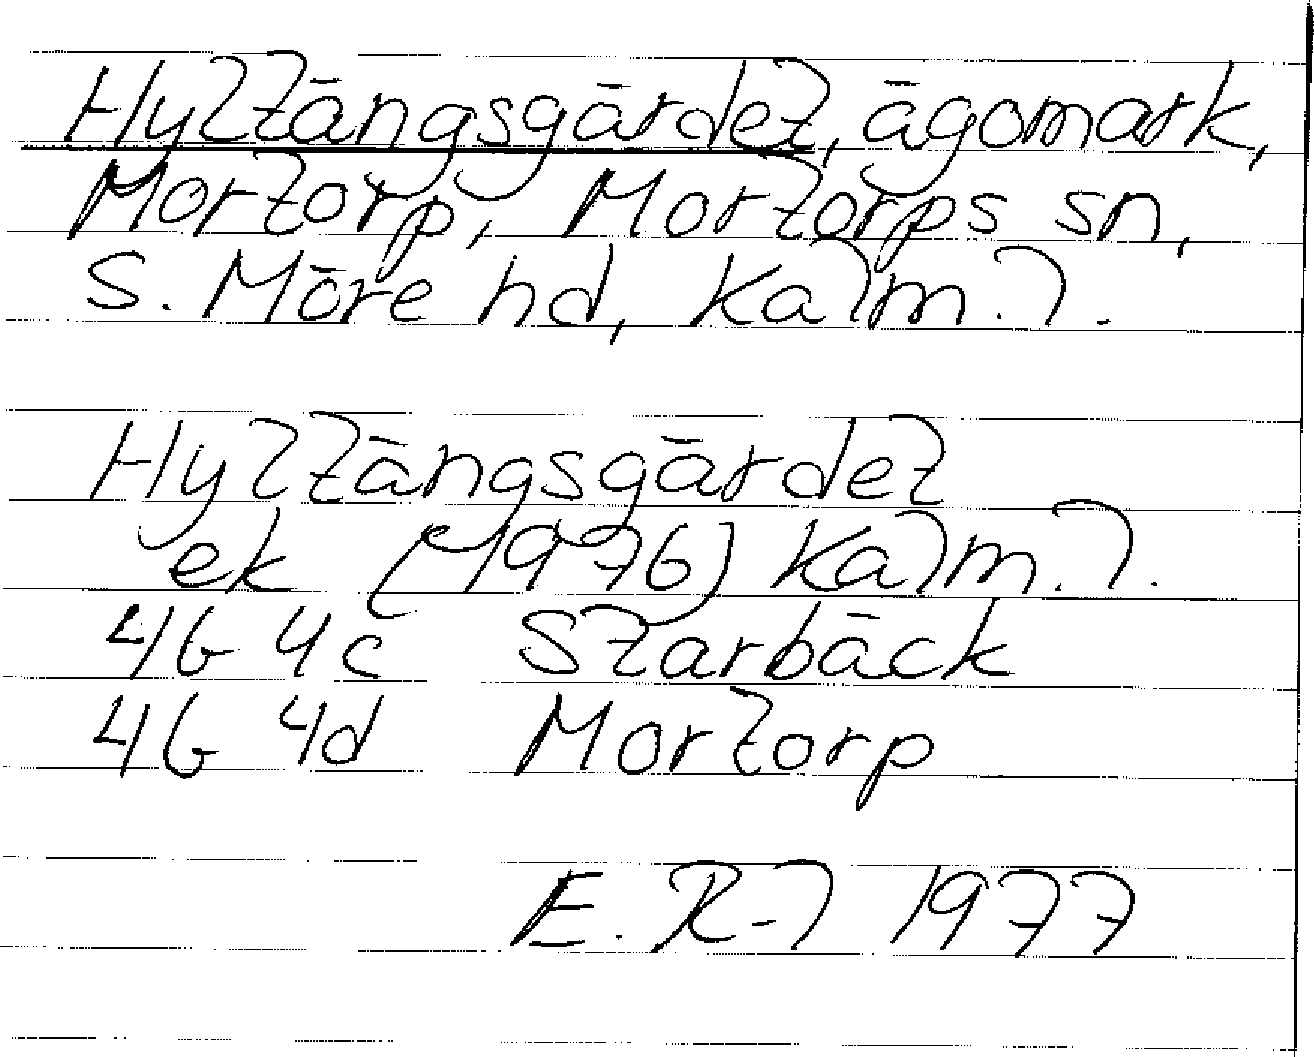 Hyltängsgärdet, ägomark,
Mortorp, Mortorps sn,
S. Möre hd, Kalm. l.
Hyltängsgärdet
ek (1976) Kalm. l.
4G 4c Starbäck
4G 4d Mortorp
E. R-l 1977